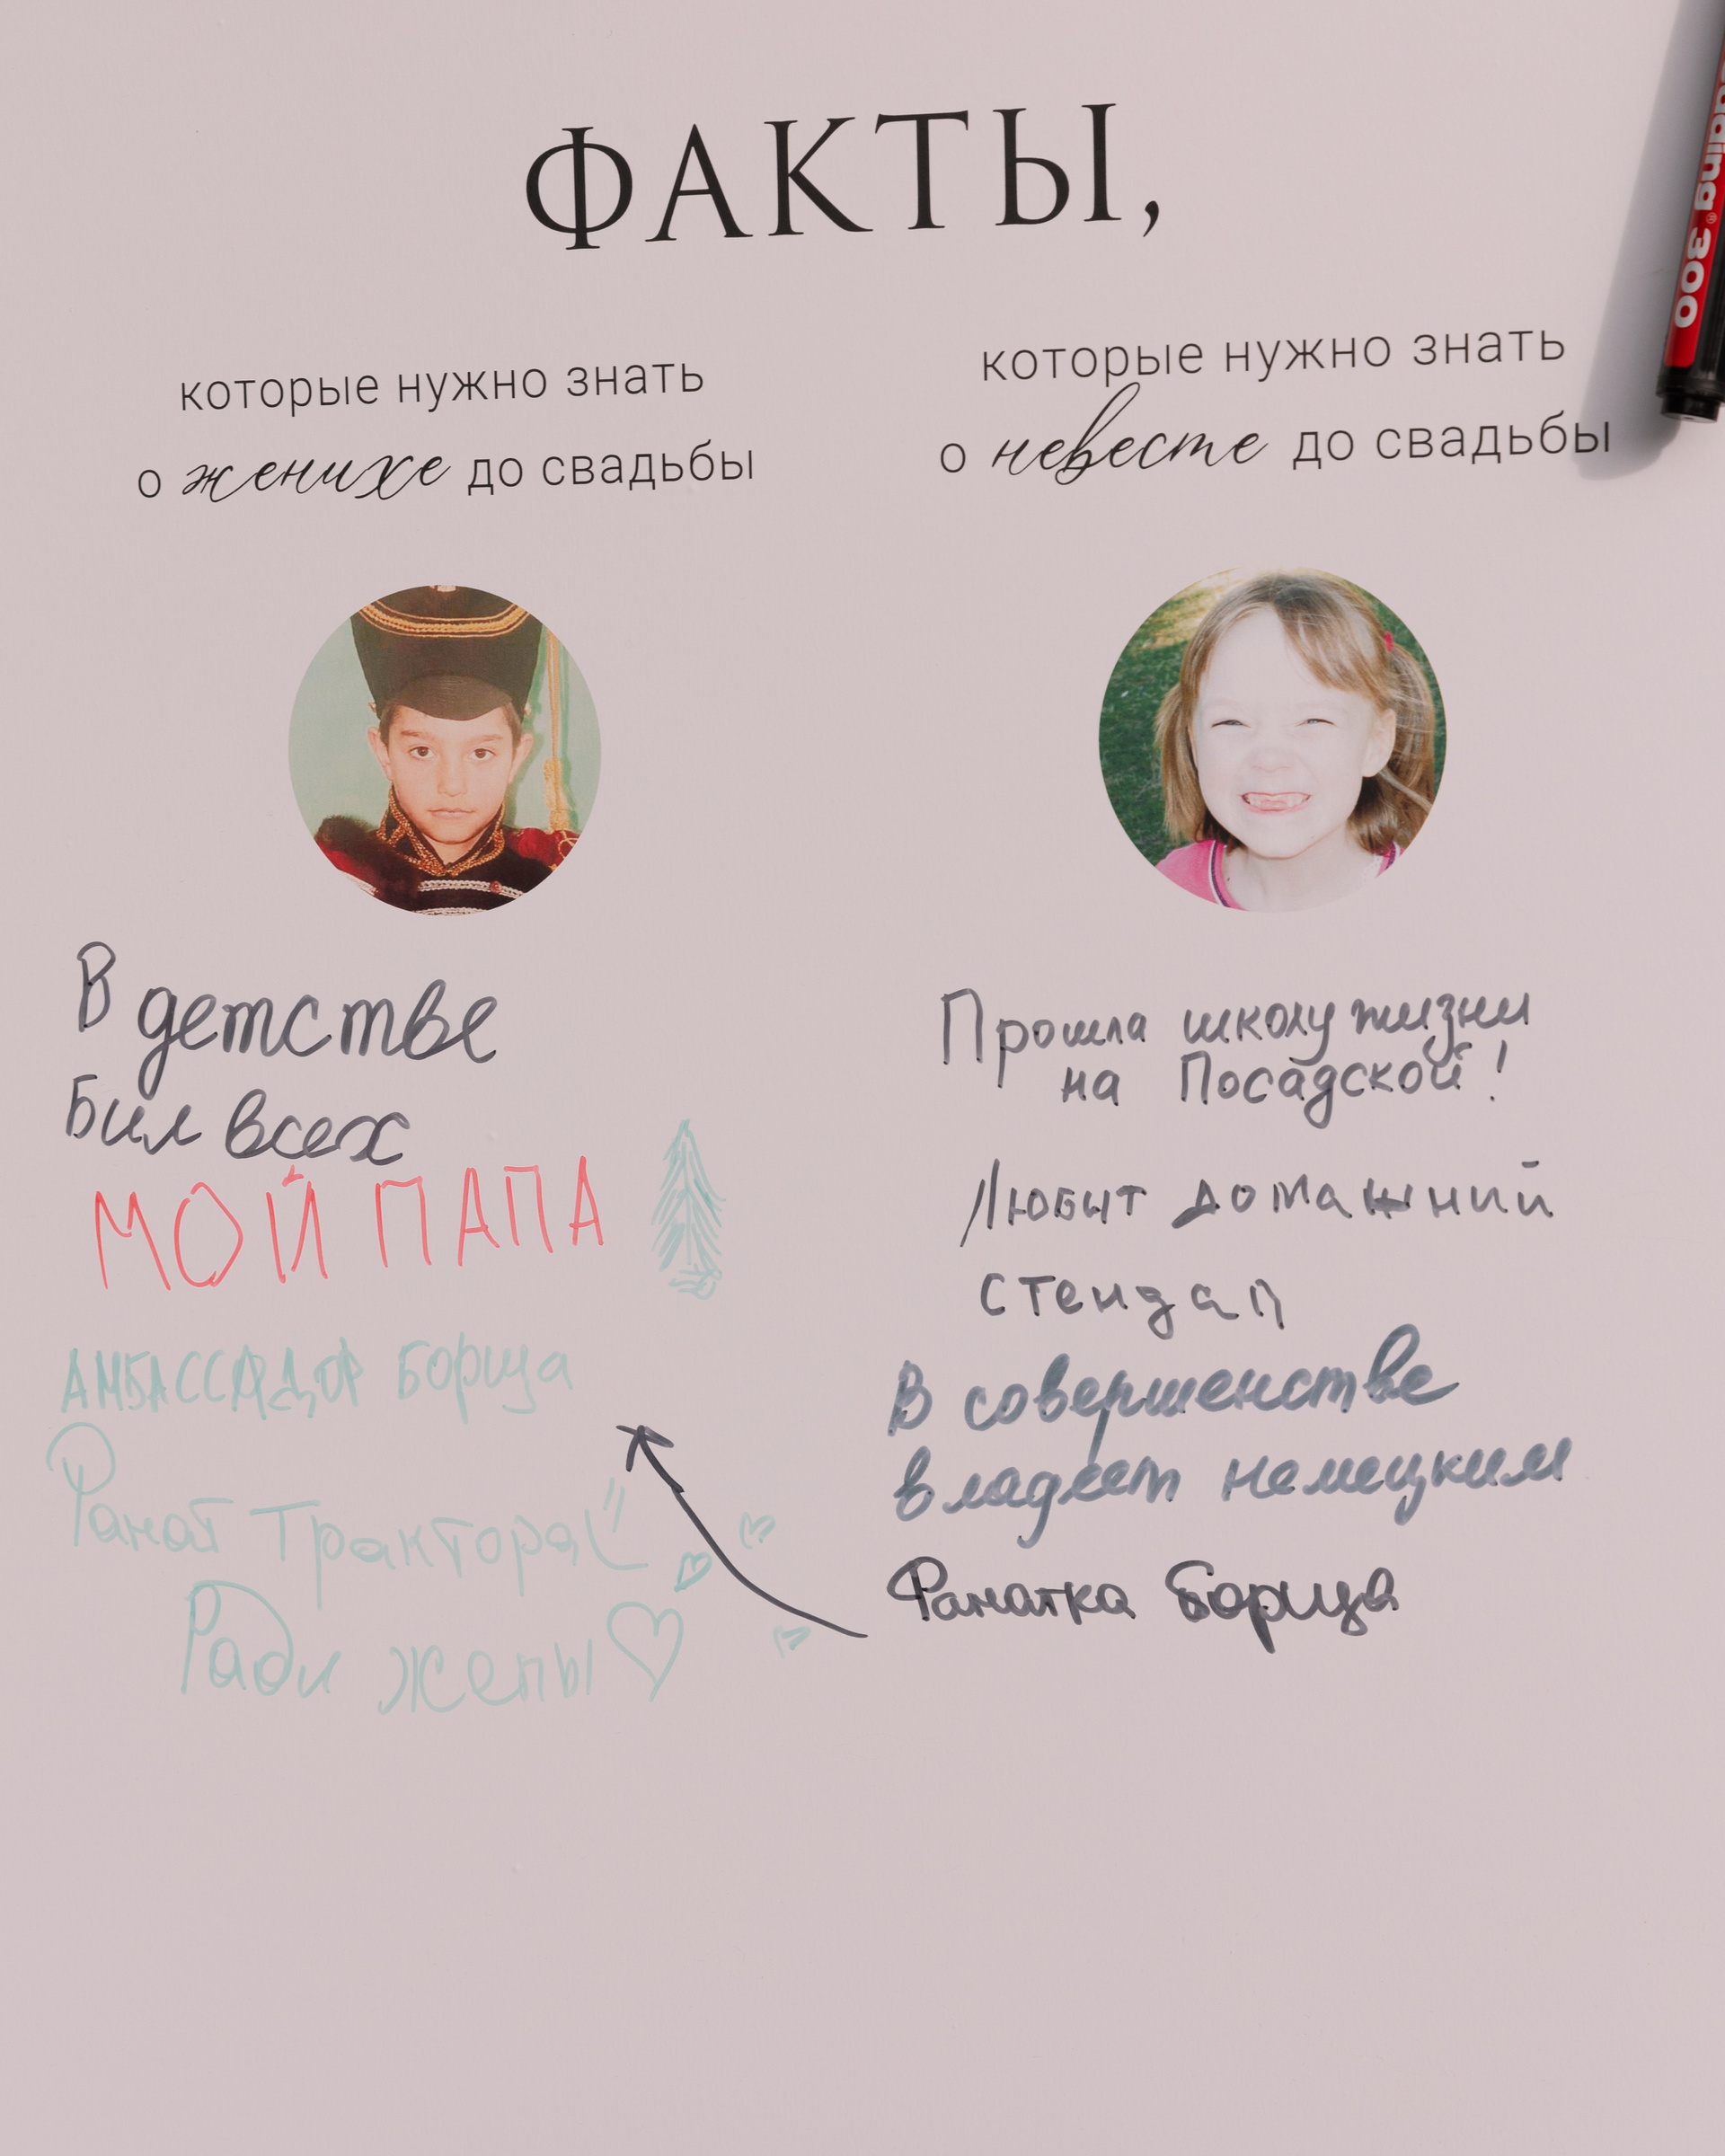 ФАКТЫ,
которые нужно знать
о женихе до свадьбы
которые нужно знать
о невесте до свадьбы
В детстве
Бил всех
МОЙ ПАПА
АМБАССАДОР Борща
Фанат Трактора
Ради жены
Прошла школу жизни
на Посадской!
Любит домашний
стендап
В совершенстве
владеет немецким
Фанатка Борща
edding® 300